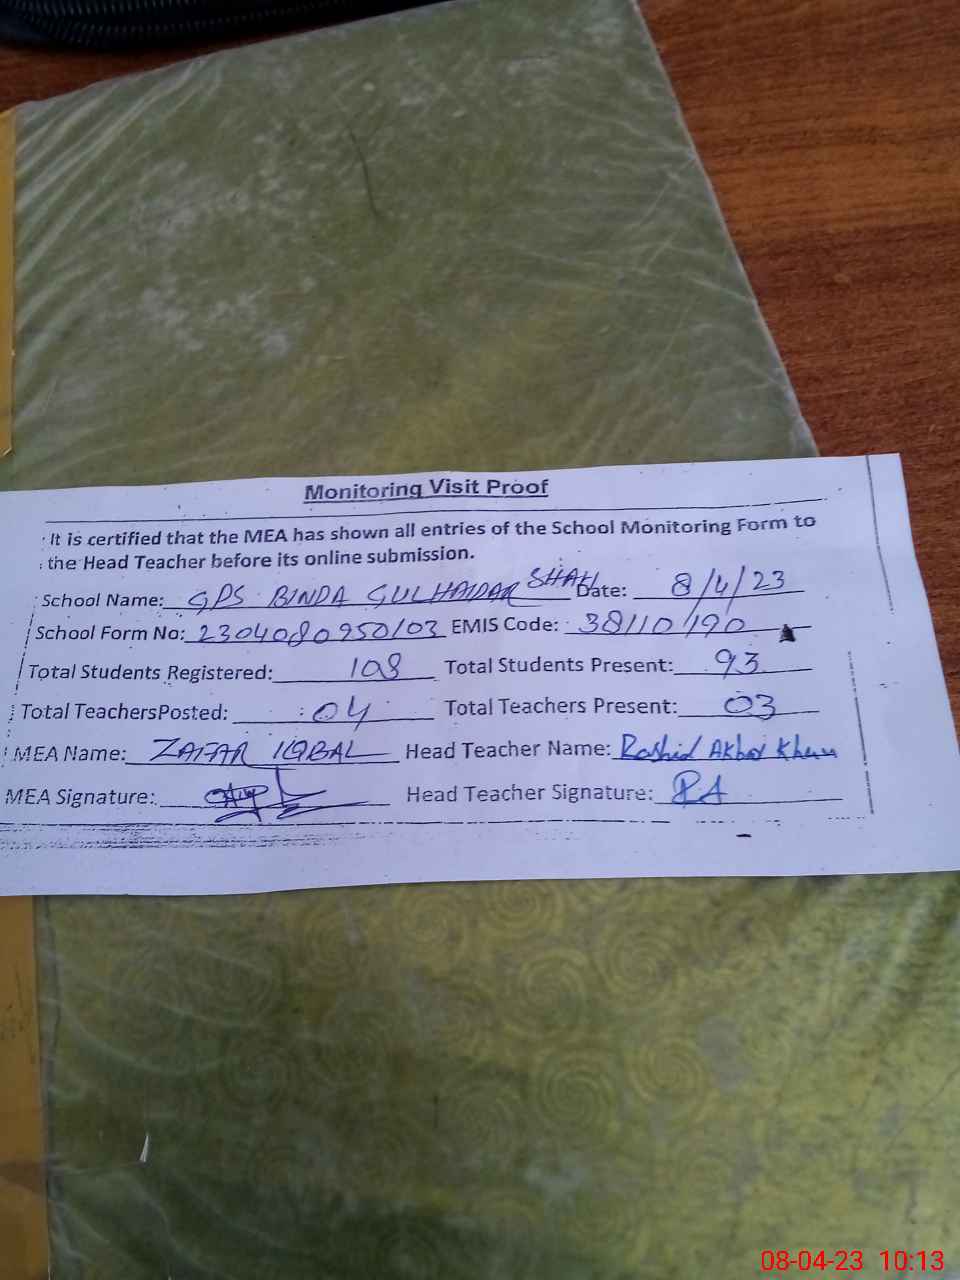 Monitoring Visit Proof
It is certified that the MEA has shown all entries of the School Monitoring Form to
the Head Teacher before its online submission.
School Name: GPS BINDA GULHAIDAR SHAH Date: 8/4/23
School Form No: 2304080950/03 EMIS Code: 38110190
Total Students Registered: 108 Total Students Present: 93
Total TeachersPosted: 04 Total Teachers Present: 03
MEA Name: ZAFAR IQBAL Head Teacher Name: Rashid Akbar Khan
MEA Signature: Head Teacher Signature: RA
08-04-23 10:13